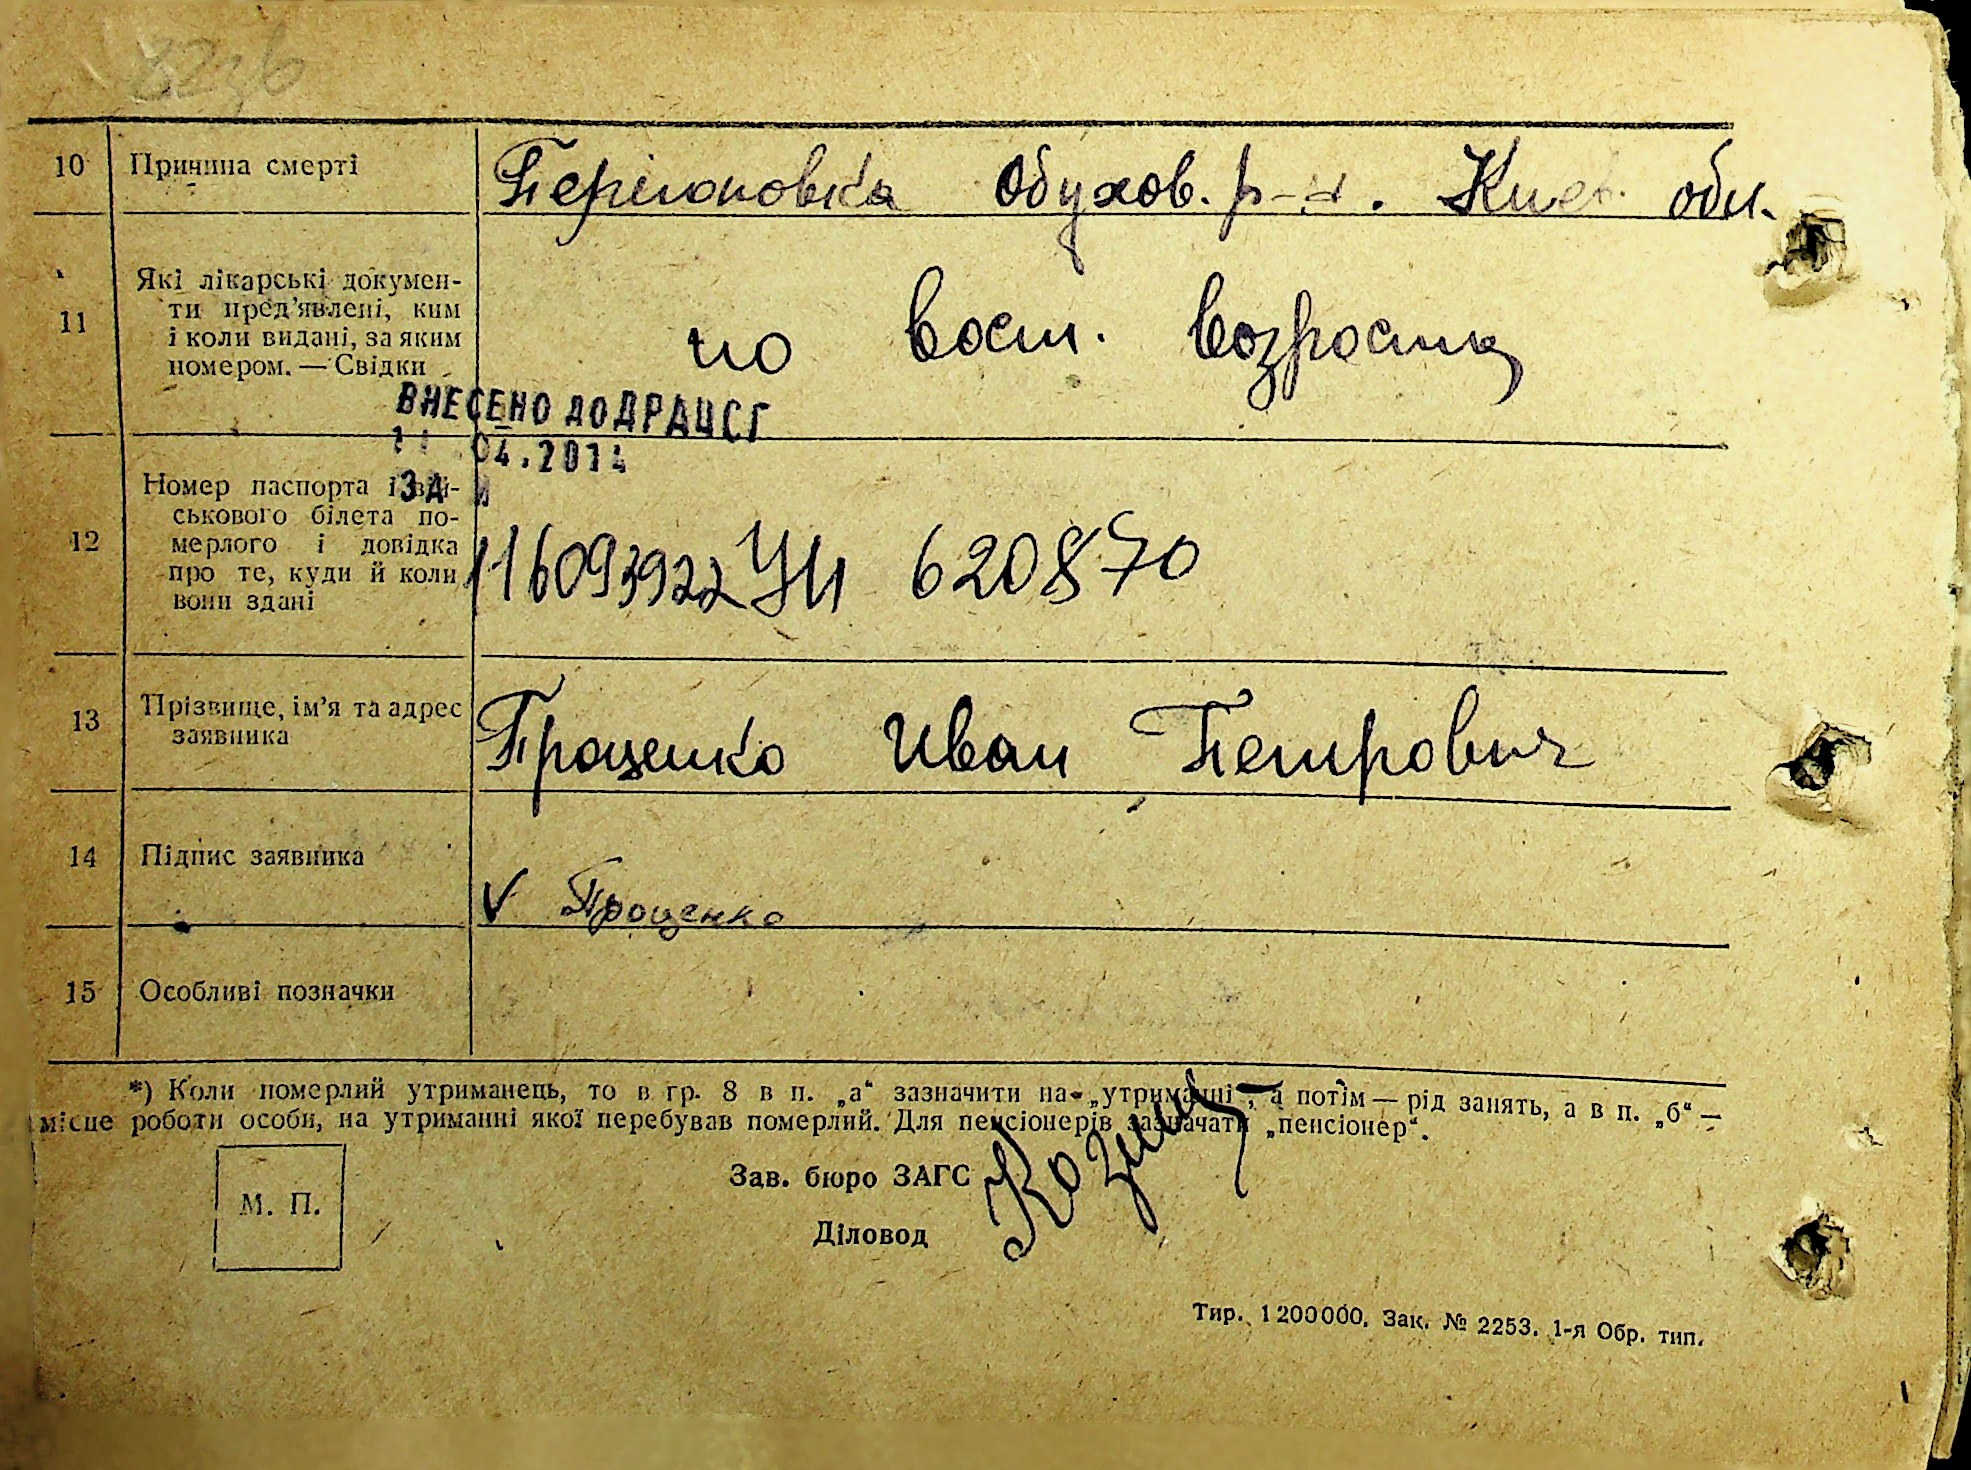 10 Причина смерті Перегоновка Обухов. р-н. Киев. обл.
11 Які лікарські докумен-
ти пред'явлені, ким
і коли видані, за яким
номером. — Свідки
по вост. возрасту
ВНЕСЕНО ДО ДРАЦСГ
04.2014
ЗА
12 Номер паспорта і вій-
ськового білета по-
мерлого і довідка
про те, куди й коли
вони здані
УИ 620870
13 Прізвище, ім'я та адрес
заявника
Проценко Иван Петрович
14 Підпис заявника
V Проценко
15 Особливі позначки
*) Коли померлий утриманець, то в гр. 8 в п. „а“ зазначити на „утриманні“, а потім — рід занять, а в п. „б“ —
місце роботи особи, на утриманні якої перебував померлий. Для пенсіонерів зазначати „пенсіонер“.
М. П.
Зав. бюро ЗАГС
Діловод
Тир. 1200000. Зак. № 2253. 1-я Обр. тип.